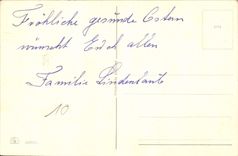 Fröhliche gesunde Ostern
wünscht Euch allen
Familie Lindenlaub
10